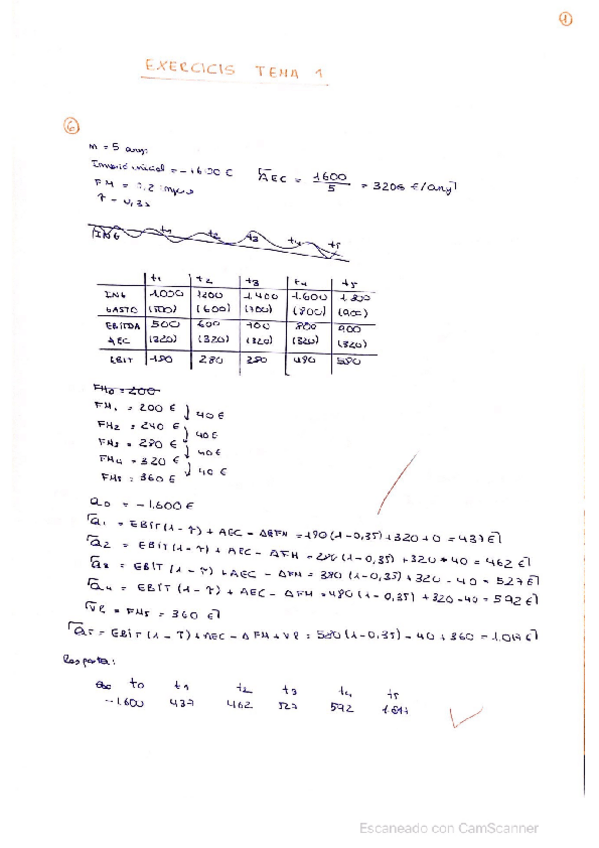 1
EXERCICIS TEMA 1
6
n = 5 anys
Inversió inicial = -1600 € AEC = 1600 / 5 = 320€ €/any
FM = 0,2 ingres
T = 0,35
ING t1 t2 t3 t4 t5
t1 t2 t3 t4 t5
ING 1.000 1200 1.400 1.600 1.800
GASTO (500) (600) (700) (800) (900)
EBITDA 500 600 700 800 900
AEC (320) (320) (320) (320) (320)
EBIT 180 280 380 480 580
FM0 = 200
FM1 = 200 € 40 €
FM2 = 240 € 40 €
FM3 = 280 € 40 €
FM4 = 320 € 40 €
FM5 = 360 €
a0 = -1,600 €
a1 = EBIT (1 - T) + AEC - ΔFM = 180 (1-0,35) + 320 + 0 = 437 €
a2 = EBIT (1 - T) + AEC - ΔFM = 280 (1-0,35) + 320 - 40 = 462 €
a3 = EBIT (1 - T) + AEC - ΔFM = 380 (1-0,35) + 320 - 40 = 527 €
a4 = EBIT (1 - T) + AEC - ΔFM = 480 (1-0,35) + 320 - 40 = 592 €
VR = FM5 = 360 €
a5 = EBIT (1 - T) + AEC - ΔFM + VR = 580 (1-0,35) - 40 + 360 = 1.017 €
Resposta:
t0 t1 t2 t3 t4 t5
-1.600 437 462 527 592 1.017
Escaneado con CamScanner